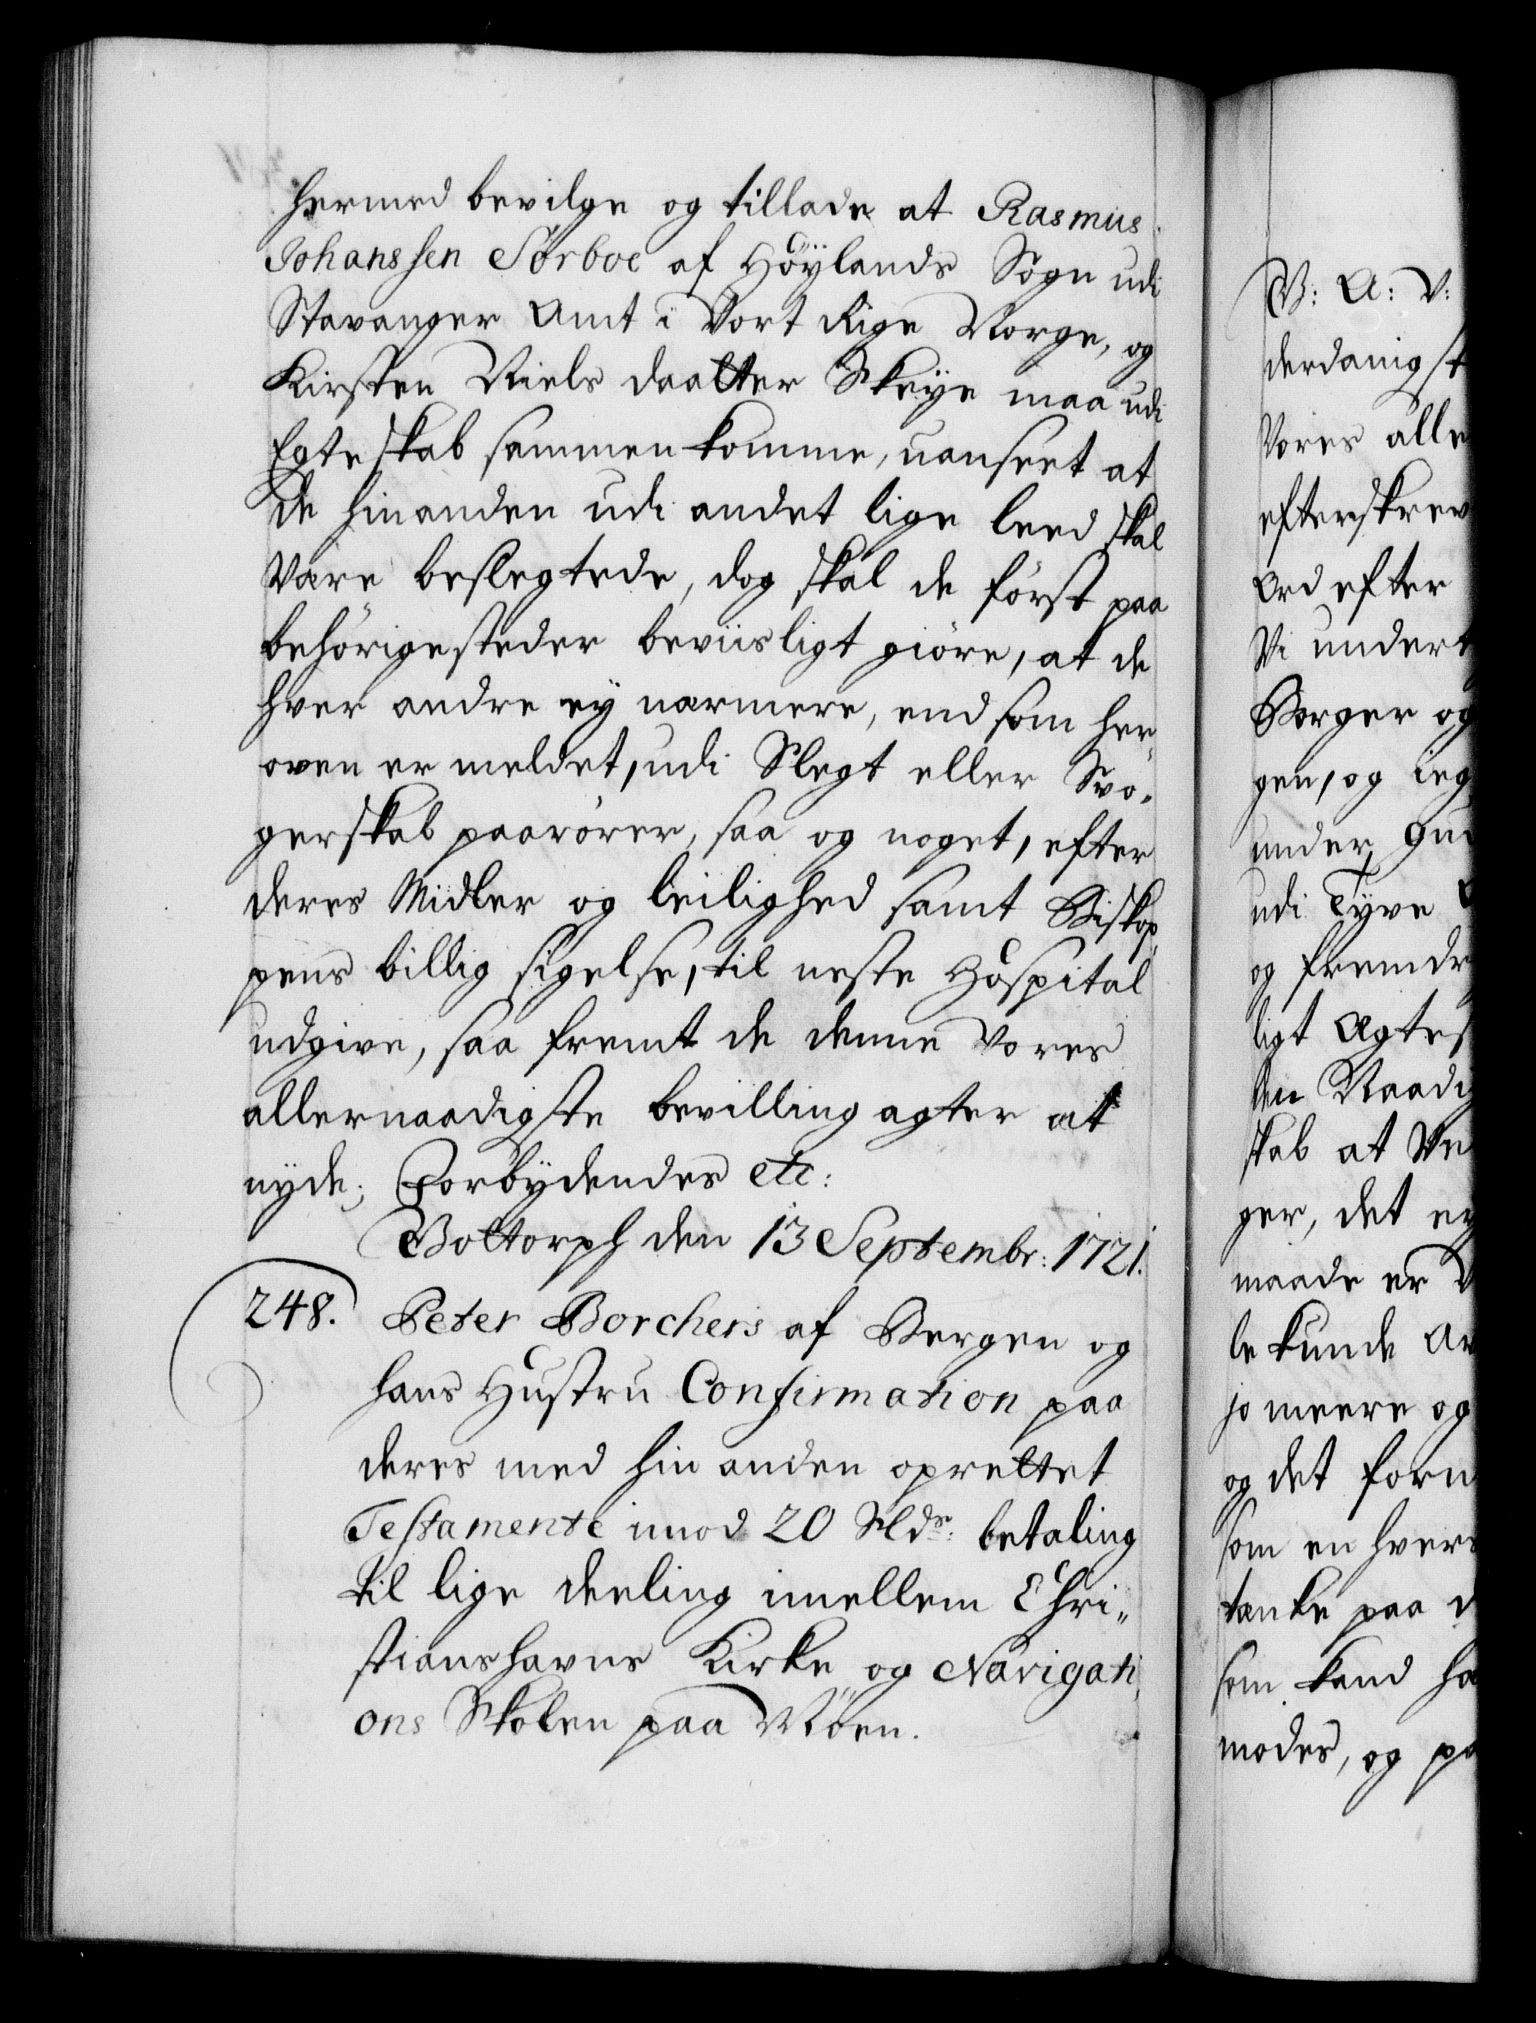 hermed bevilge og tillade at Rasmus
Johanssen Sørboe af Høylands Sogn udi
Stavanger Amt i Vort Rige Norge, og
Kirsten Niels daatter Skeye maa udi
Egteskab sammen komme, uanseet at
de hinanden udi andet lige leed skal
være beslegtede, dog skal de først paa
behørige steder beviisligt giøre, at de
hver andre ey nærmere, end som her
oven er meldet, udi Slegt eller Svo-
gerskab paarører, saa og noget, efter
deres Midler og leilighed samt Biskop
pens billig sigelse, til neste Hospital
udgive, saa fremt de denne Vores
allernaadigste bevilling agter at
nyde; Forbydendes etc:
Gottorph den 13 Septembr: 1721.
248. Peter Borchers af Bergen og
hans Hustru Confirmation paa
deres med hin anden oprettet
Testamente imod 20 Sldr: betaling
til lige deeling imellem Chri-
stianshavns Kirke og Navigati
ons Skolen paa Møen.
V: A: V:
derdanigst
Vores alle
efterskrev
Ord efter
Vi undert
Borger og
gen, og ieg
under Gud
udi Tyve
og fremde
ligt Ægtes
den Naadig
skab at Ve
ger, det ey
maade er
le kunde
jo meere og
og det forn
som en hvers
tanke paa d
som kand ha
modes, og pa